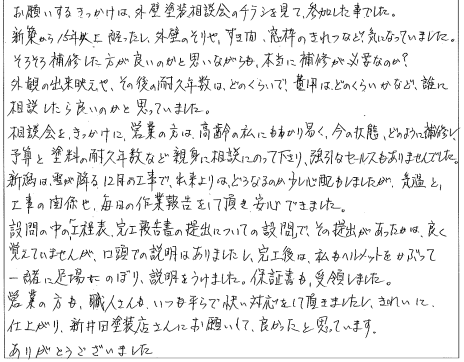 お願いするきっかけは、外壁塗装相談会のチラシを見て、参加した事でした。
新築から15年以上経ったし、外壁のそりや、すき間、窓枠のきれつなど気になっていました。
そろそろ補修した方が良いのかと思いながらも、本当に補修が必要なのか?
外観の出来映えや、その後の耐久年数は、どのくらいで、費用は、どのくらいかなど、誰に
相談したら良いのかと思っていました。
相談会を、きっかけに、営業の方は、高齢の私にもわかり易く、今の状態、どのように補修し、
予算と塗料の耐久年数など親身に相談にのって下さり、強引なセールスもありませんでした。
新潟は、雪が降る12月の工事で、出来上りは、どうなるのか少し心配もしましたが、気温と、
工事の関係や、毎日の作業報告をして頂き安心できました。
設問の中の、工程表、完工報告書の提出についての設問で、その提出があったかは、良く
覚えていませんが、口頭での説明はありましたし、完工後は、私もヘルメットをかぶって
一緒に足場にのぼり、説明をうけました。保証書も、受領しました。
営業の方も、職人さんも、いつも平らで快い対応をして頂きましたし、きれいに、
仕上がり、新井田塗装店さんにお願いして、良かったと思っています。
ありがとうございました